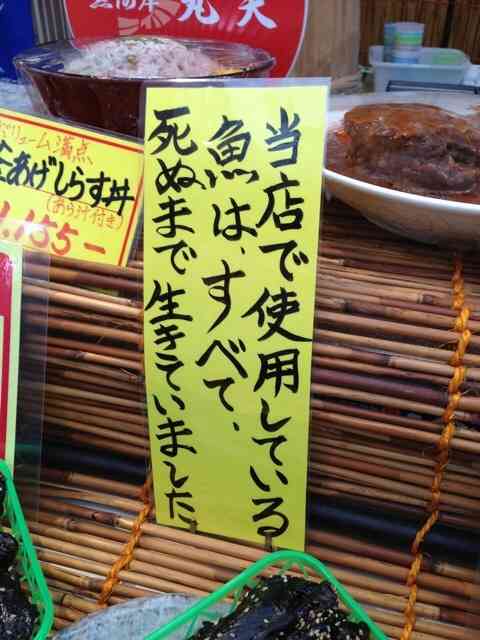 当店で使用している
魚は、すべて、
死ぬまで生きていました
ボリューム満点
釜あげしらす丼
(あら汁付き)
1,155-